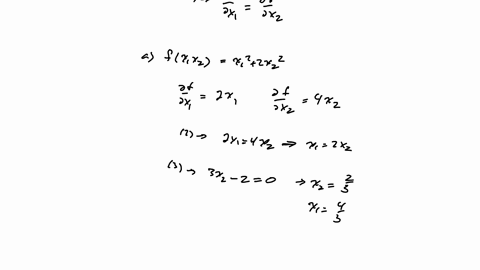 ∂x₁ = ∂x₂
a) f(x₁x₂) = x₁²+2x₂²
∂f/∂x₁ = 2x₁ ∂f/∂x₂ = 4x₂
(2)→ 2x₁=4x₂ ⇒ x₁=2x₂
(3)→ 3x₂-2=0 → x₂=2/3
x₁=4/3